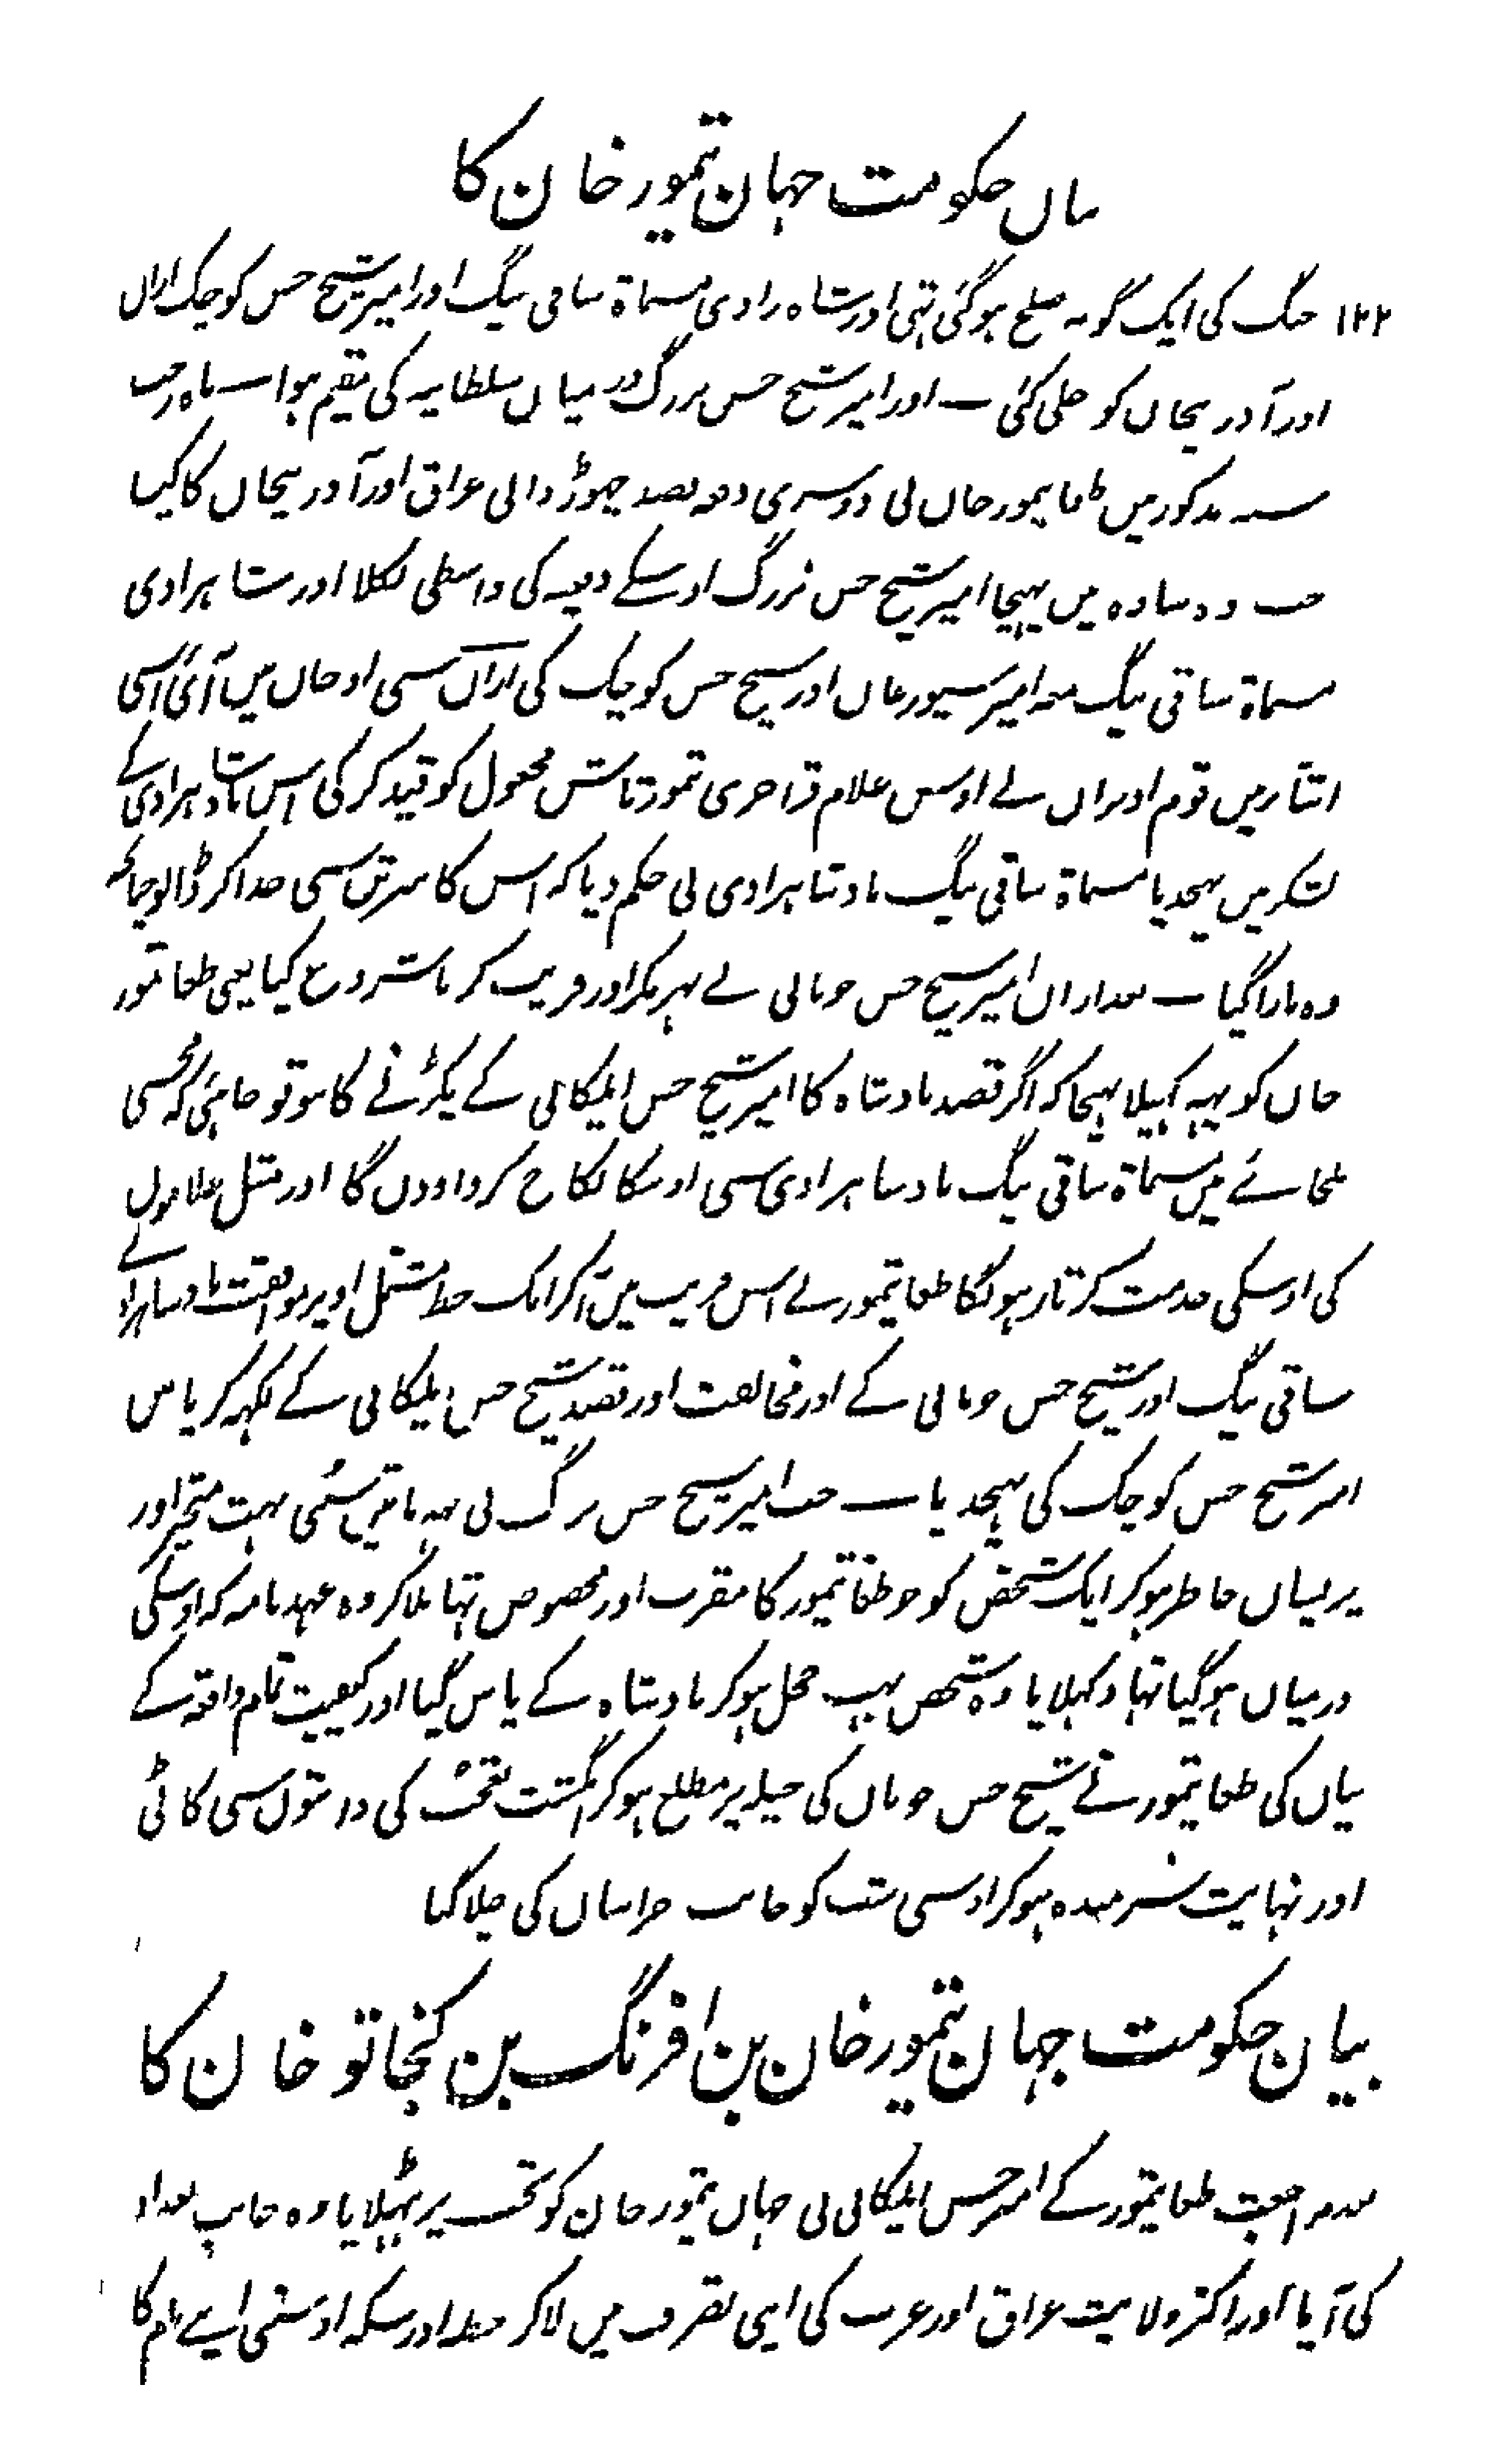 بیان حکومت جہان تیمور خان کا
۱۲۲ جنگ کی ایک گونہ صلح ہوگئی تہی اور شاہ زادی مسماۃ ساقی بیگ اور امیر شیخ حسن کوچک اران
اور آذربیجان کو چلی گئی ۔ اور امیر شیخ حسن بزرگ درمیان سلطانیہ کی مقیم ہوا ۔ ماہ رجب
سنہ مذکور میں طغا تیمور خان نی دوسری دفعہ قصد چہوڑ والی عراق اور آذربیجان کا کیا
جب وہ ساوہ میں پہنچا امیر شیخ حسن بزرگ اوسکے دفعیہ کی واسطی نکلا اور شاہزادی
مسماۃ ساقی بیگ معہ امیر سیورغان اور شیخ حسن کوچک کی اران سی اوجان میں آئی اسی
اثناء میں قوم اویرات نے اوس غلام قراجری تمورتاش مجعول کو قید کرکی اس بادشاہزادی کے
لشکر میں بہیجدیا مسماۃ ساقی بیگ بادشاہزادی نی حکم دیا کہ اس کا سر تن سی جدا کر ڈالو چنانچہ
وہ مارا گیا ۔ بعد ازان امیر شیخ حسن چوپانی نے پہر مکر اور فریب کرنا شروع کیا یعنی طغا تمور
خان کو یہہ کہیلا بہیجا کہ اگر قصد بادشاہ کا امیر شیخ حسن ایلیکانی کے پکڑنے کا ہو تو چاہئی کہ مجہسی
ملجائے میں مسماۃ ساقی بیگ بادشاہزادی سی اوسکا نکاح کروادوں گا اور مثل غلاموں
کی اوسکی خدمت کرتا رہونگا طغا تیمور نے اس فریب میں آکر ایک خط مشتمل اوپر موافقت بادشاہزادی
ساقی بیگ اور شیخ حسن چوپانی کے اور مخالفت اور قصد شیخ حسن ایلیکانی کے لکہہ کر پاس
امیر شیخ حسن کوچک کی بہیجدیا ۔ جب امیر شیخ حسن بزرگ نی یہہ باتیں سنی بہت متحیر اور
پریشان خاطر ہوکر ایک شخص کو جو طغا تیمور کا مقرب اور مخصوص تہا بلاکر وہ عہد نامہ کہ اوسکی
درمیان ہوگیا تہا دکہلایا وہ شخص بہت خجل ہوکر بادشاہ کے پاس گیا اور کیفیت تمام واقعہ کے
بیان کی طغا تیمور نے شیخ حسن چوپان کی حیلہ پر مطلع ہوکر انگشت تعجب کی دانتوں سی کاٹی
اور نہایت شرمندہ ہوکر اوسی شب کو جانب خراسان کی چلا گیا
بیان حکومت جہان تیمور خان بن افرنگ بن کنجاتو خان کا
بعد مراجعت طغا تیمور کے امیر حسن ایلیکانی نی جہان تیمور خان کو تخت پر بٹہلایا وہ جانب بغداد
کی آیا اور اکثر ولایت عراق اور عرب کی اپنی تصرف میں لاکر خطبہ اور سکہ اوسنی اپنے نام کا